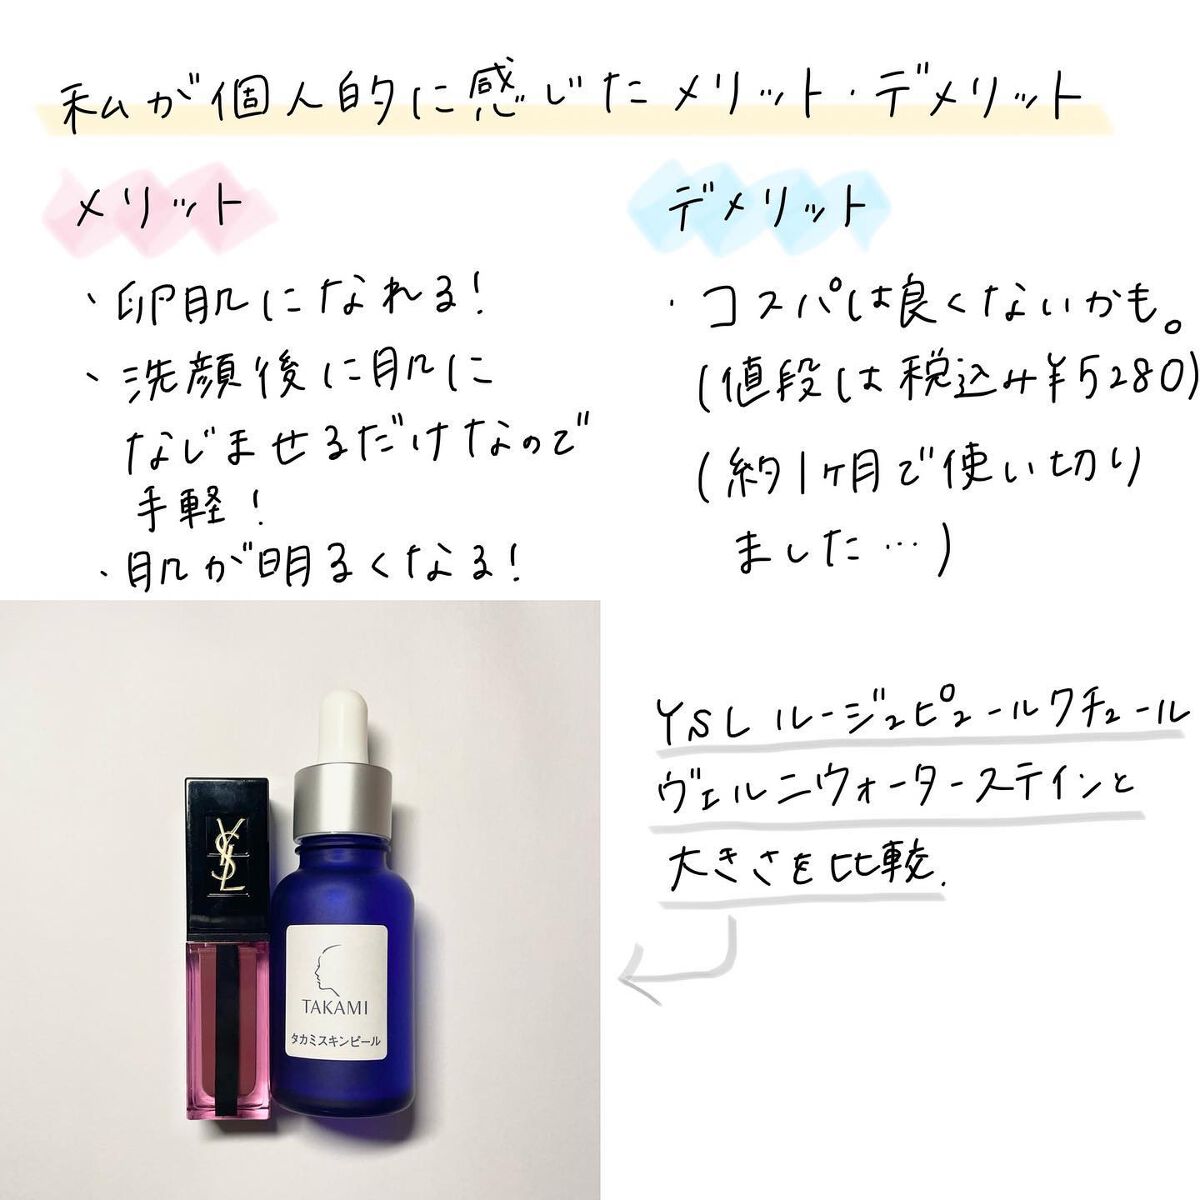 私が個人的に感じたメリット・デメリット
メリット
・卵肌になれる!
・洗顔後に肌に
なじませるだけなので
手軽!
・肌が明るくなる!
デメリット
・コスパは良くないかも。
(値段は税込み¥5280)
(約1ヶ月で使い切り
ました…)
YSL ルージュピュールクチュール
ヴェルニウォーターステインと
大きさを比較.
YSL
TAKAMI
タカミスキンピール